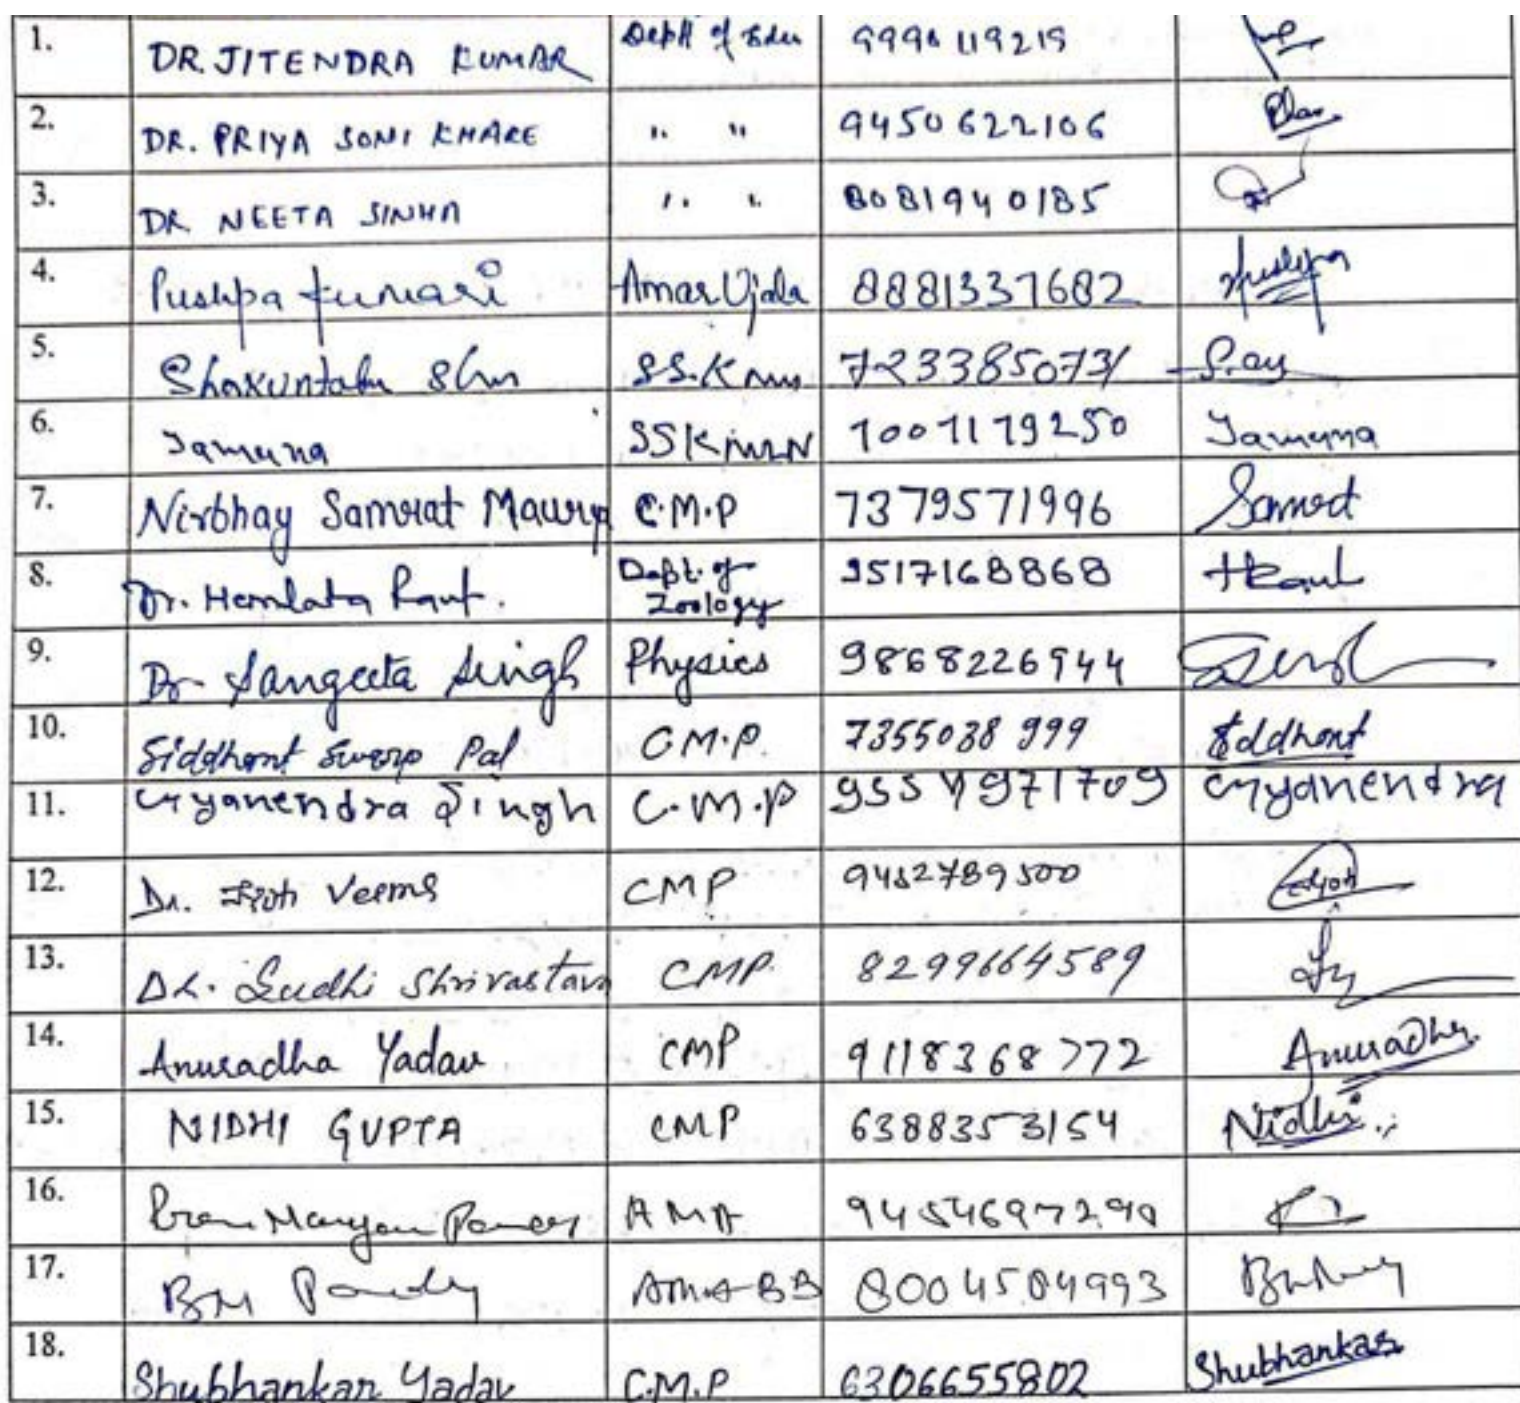 1. DR. JITENDRA KUMAR Deptt of Edu 9996119219
2. DR. PRIYA SONI KHARE " " 9450622106
3. DR NEETA SINHA " " 8081940185
4. Pushpa Kumari Amar Ujala 8881337682 Pushpa
5. Shakuntala 7233850731
6. Jamuna Jamuna
7. Nirbhay Samrat Maurya C.M.P 7379571996 Samrat
8. Dr. Hemlata Pant. Deptt. of Zoology 9517168868 HPant
9. Dr. Sangeeta Singh Physics 9868226944
10. Siddhant Swarup Pal C.M.P. 7355038999 Siddhant
11. Gyanendra Singh C.M.P 9554971709 Gyanendra
12. Dr. Jyoti Verma CMP 9452789500
13. Dr. Shrivastava CMP 8299664589
14. Anuradha Yadav CMP 9118368772 Anuradha
15. NIDHI GUPTA CMP 6388353154 Nidhi
16. AMA
17. BM Pandey 8004504993
18. Shubhankar Yadav C.M.P 6306655802 Shubhankar